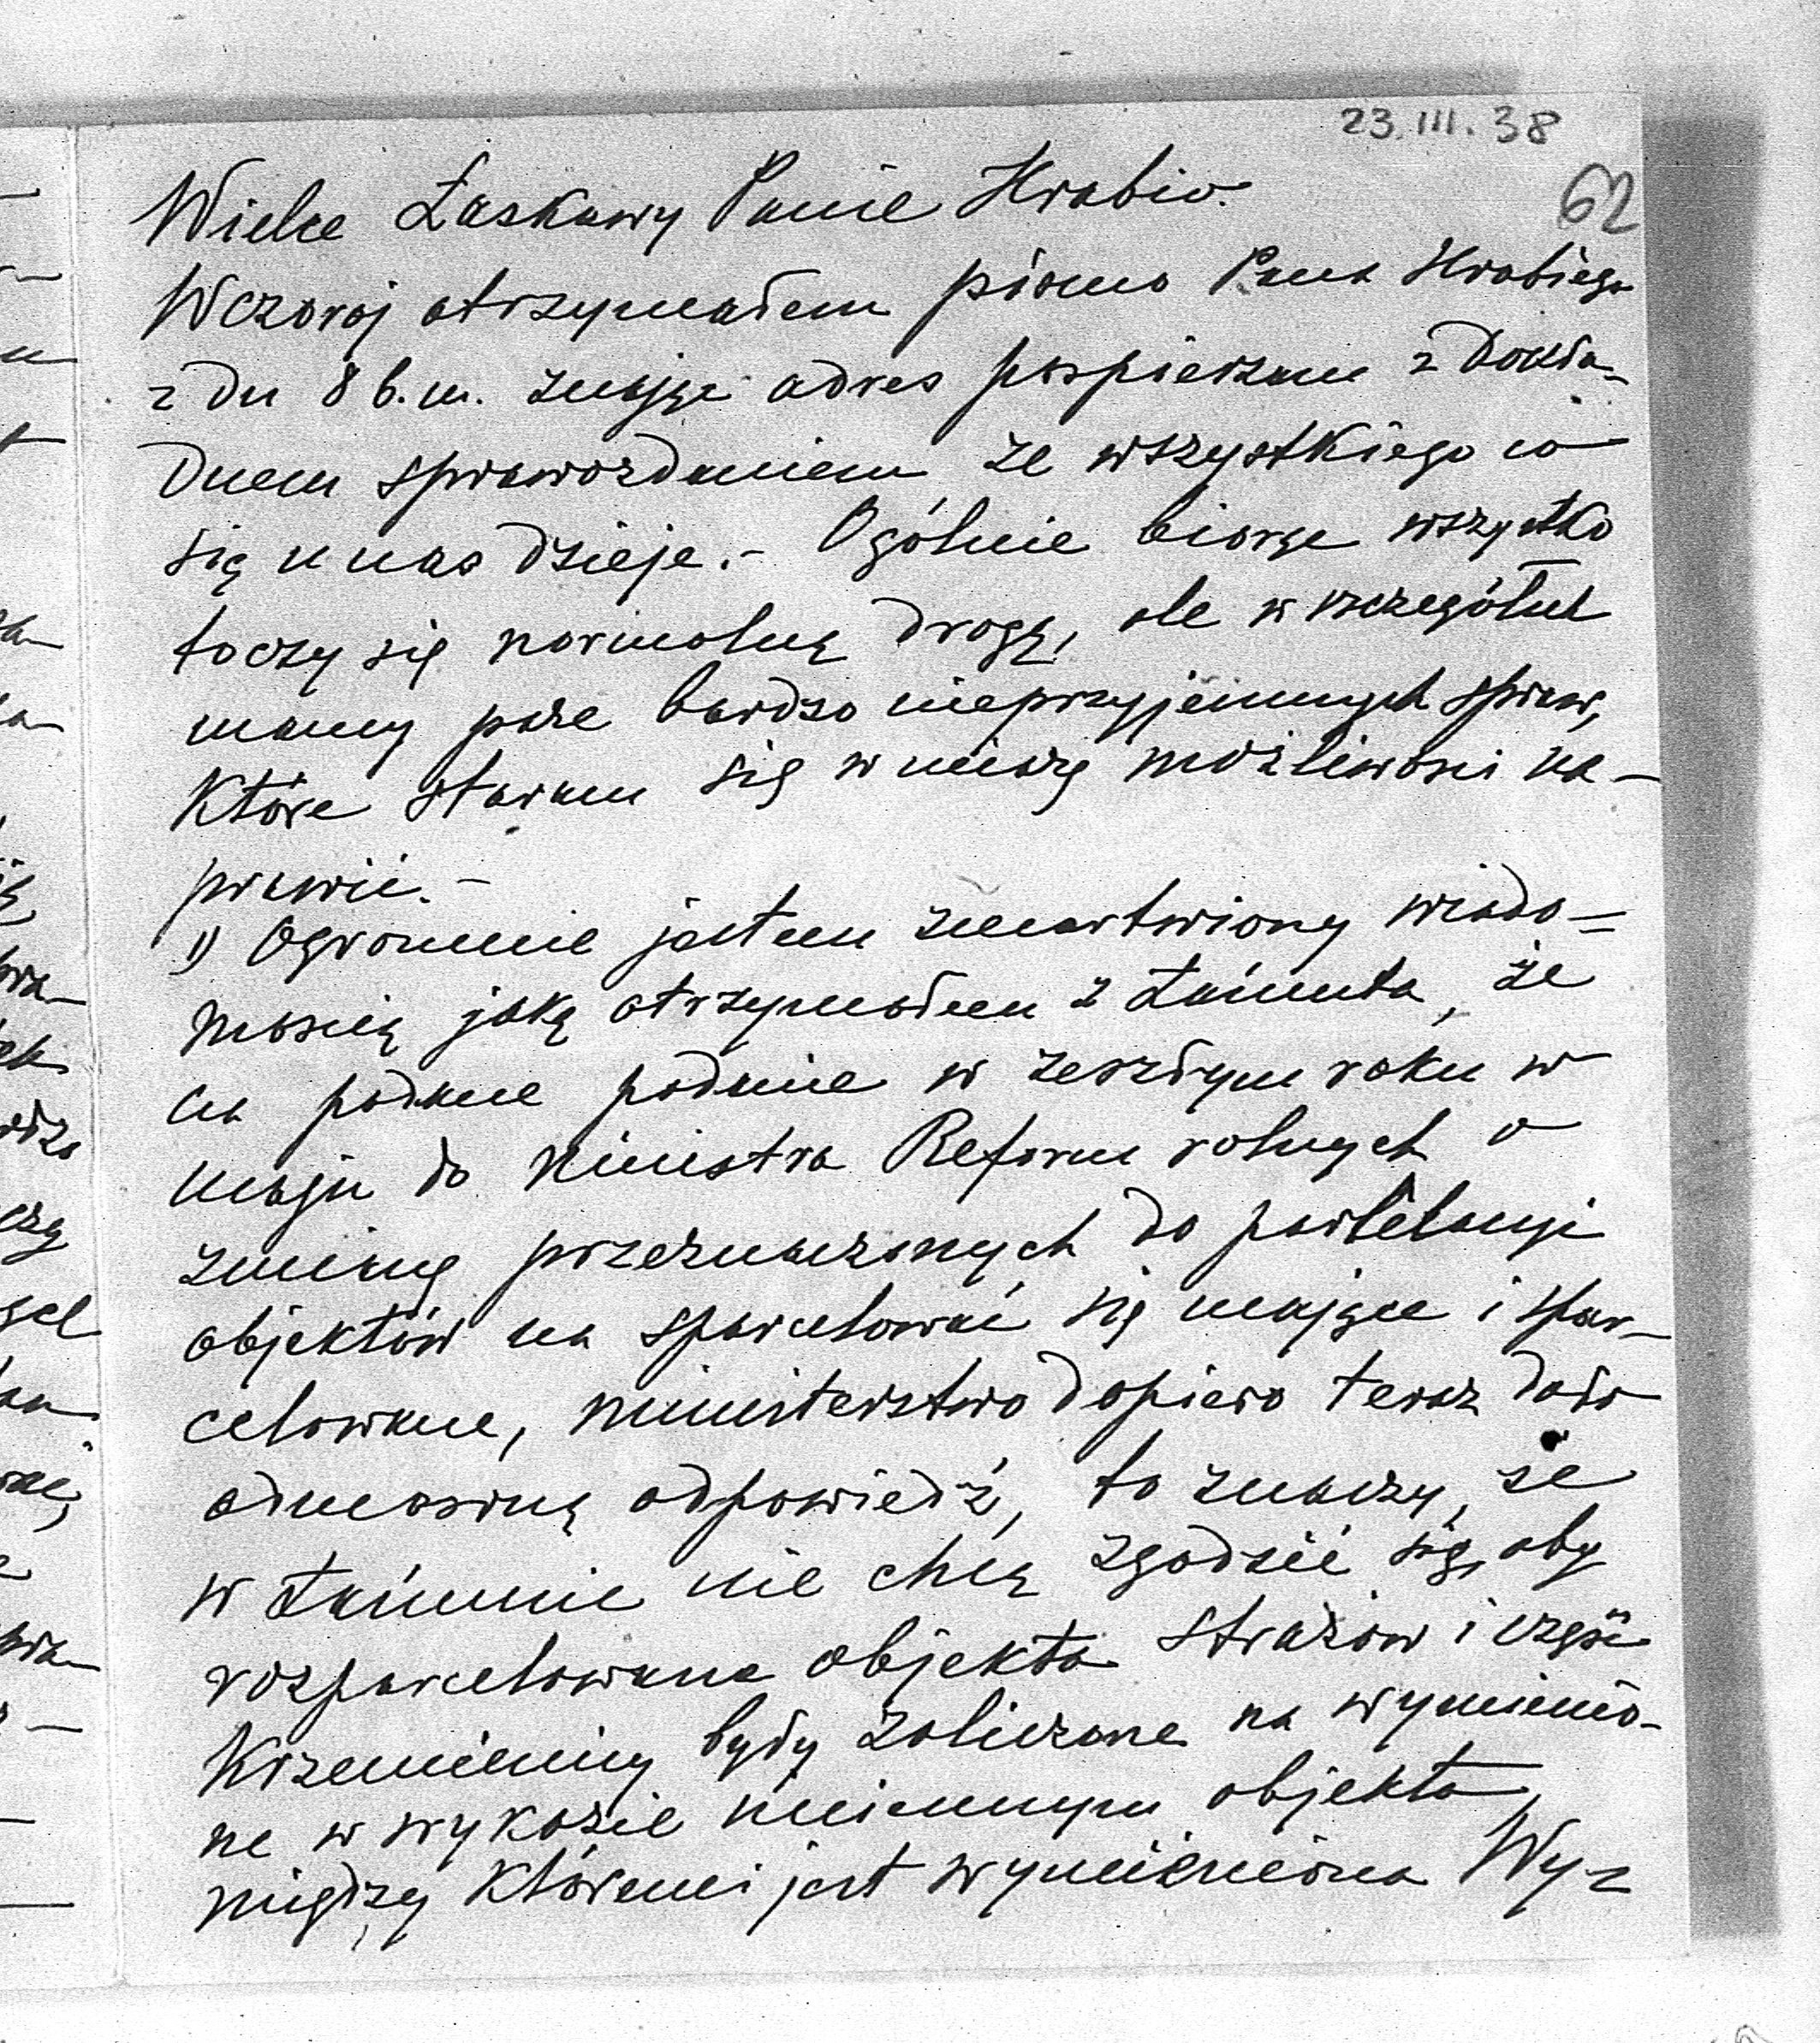 23.III.38
62
Wielce Łaskawy Panie Hrabio.
Wczoraj otrzymałem pismo Pana Hrabiego
z dn 8 b.m. znając adres pospieszam z dokła-
dnem sprawozdaniem ze wszystkiego co
się u nas dzieje.- Ogólnie biorąc wszystko
toczy się normalną drogą, ale w szczegółach
mamy parę bardzo nieprzyjemnych spraw,
które staram się w miarę możliwości na-
prawić.-
1) Ogromnie jestem zmartwiony wiado=
mością jaką otrzymałem z Łańcuta, że
na podane podanie w zeszłym roku w
maju do Ministra Reform rolnych o
zmianę przeznaczonych do parcelacyi
objektów na sparcelować się mające i spar-
celowane, ministerstwo dopiero teraz dało
odmowną odpowiedź, to znaczy, że
w Łańcucie nie chcą zgodzić się, aby
rozparcelowane objekta Strażów i część
Krzemienicy były zaliczone na wymienio-
ne w wykazie imiennym objekta,
między któremi jest wymieniona Wy-